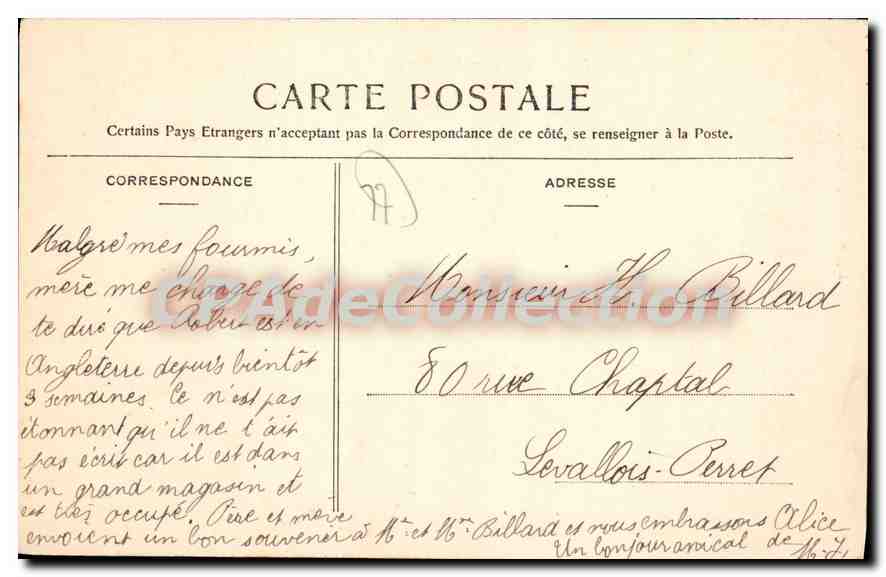 CARTE POSTALE
Certains Pays Etrangers n'acceptant pas la Correspondance de ce côté, se renseigner à la Poste.
CORRESPONDANCE
ADRESSE
77
CPADeCollection
Malgré mes fourmis,
mère me charge de
te dire que Robert est en
Angleterre depuis bientôt
3 semaines. Ce n'est pas
étonnant qu'il ne t'ait
pas écrit car il est dans
un grand magasin et
est très occupé. Père et mère
envoient un bon souvenir à Mr et Mme Billard et nous embrassons Alice
Un bonjour amical de M-J,
Monsieur H. Billard
80 rue Chaptal
Levallois-Perret